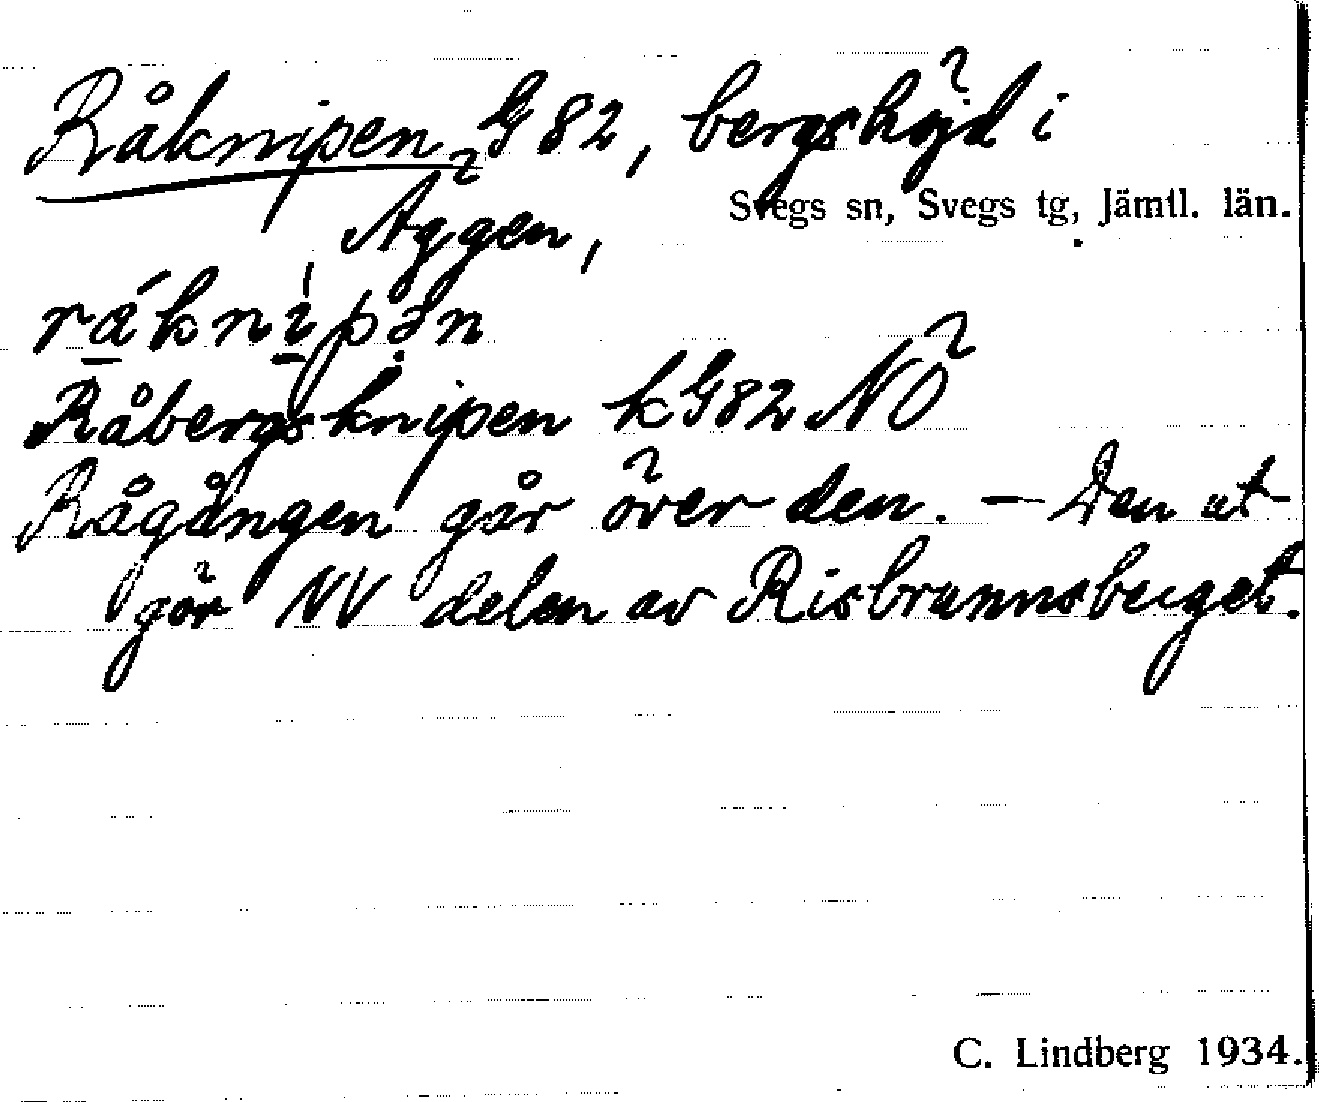 Råknipen G82, bergshöjd i
Svegs sn, Svegs tg, Jämtl. län.
Äggen,
råknipen
Råbergsknipen kG82 NÖ
Rågången går över den. — Den ut-
gör NV delen av Risbrunnsberget.
C. Lindberg 1934.